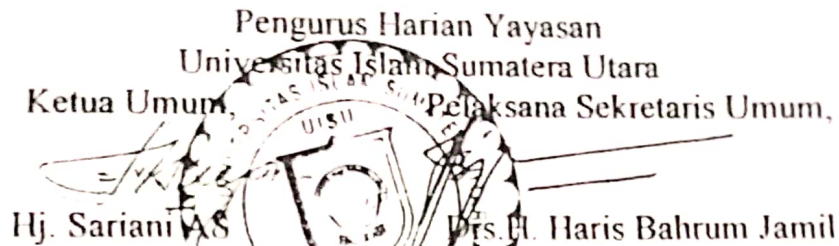 Pengurus Harian Yayasan
Universitas Islam Sumatera Utara
Ketua Umum, Pelaksana Sekretaris Umum,
UISU
Hj. Sariani AS Drs. H. Haris Bahrum Jamil